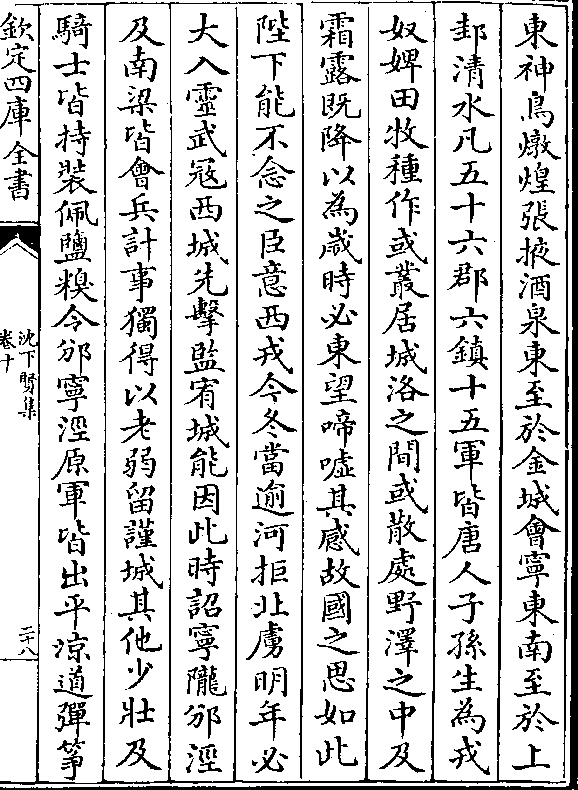 東神鳥燉煌張掖酒泉東至於金城㑹寧東南至於上
邽清水凡五十六郡六鎮十五軍皆唐人子孫生為戎
奴婢田牧種作或叢居城洛之間或散處野澤之中及
霜露既降以為嵗時必東望啼噓其感故國之思如此
陛下能不念之臣意西戎今冬當逾河拒北虜明年必
大入靈武冦西城先擊監宥城能因此時詔寧隴邠涇
及南梁皆會兵計事獨得以老弱留謹城其他少壯及
騎士皆持裝佩鹽糗令邠寧涇原軍皆出平涼道彈箏
欽定四庫全書
沈下賢集
卷十
二十八